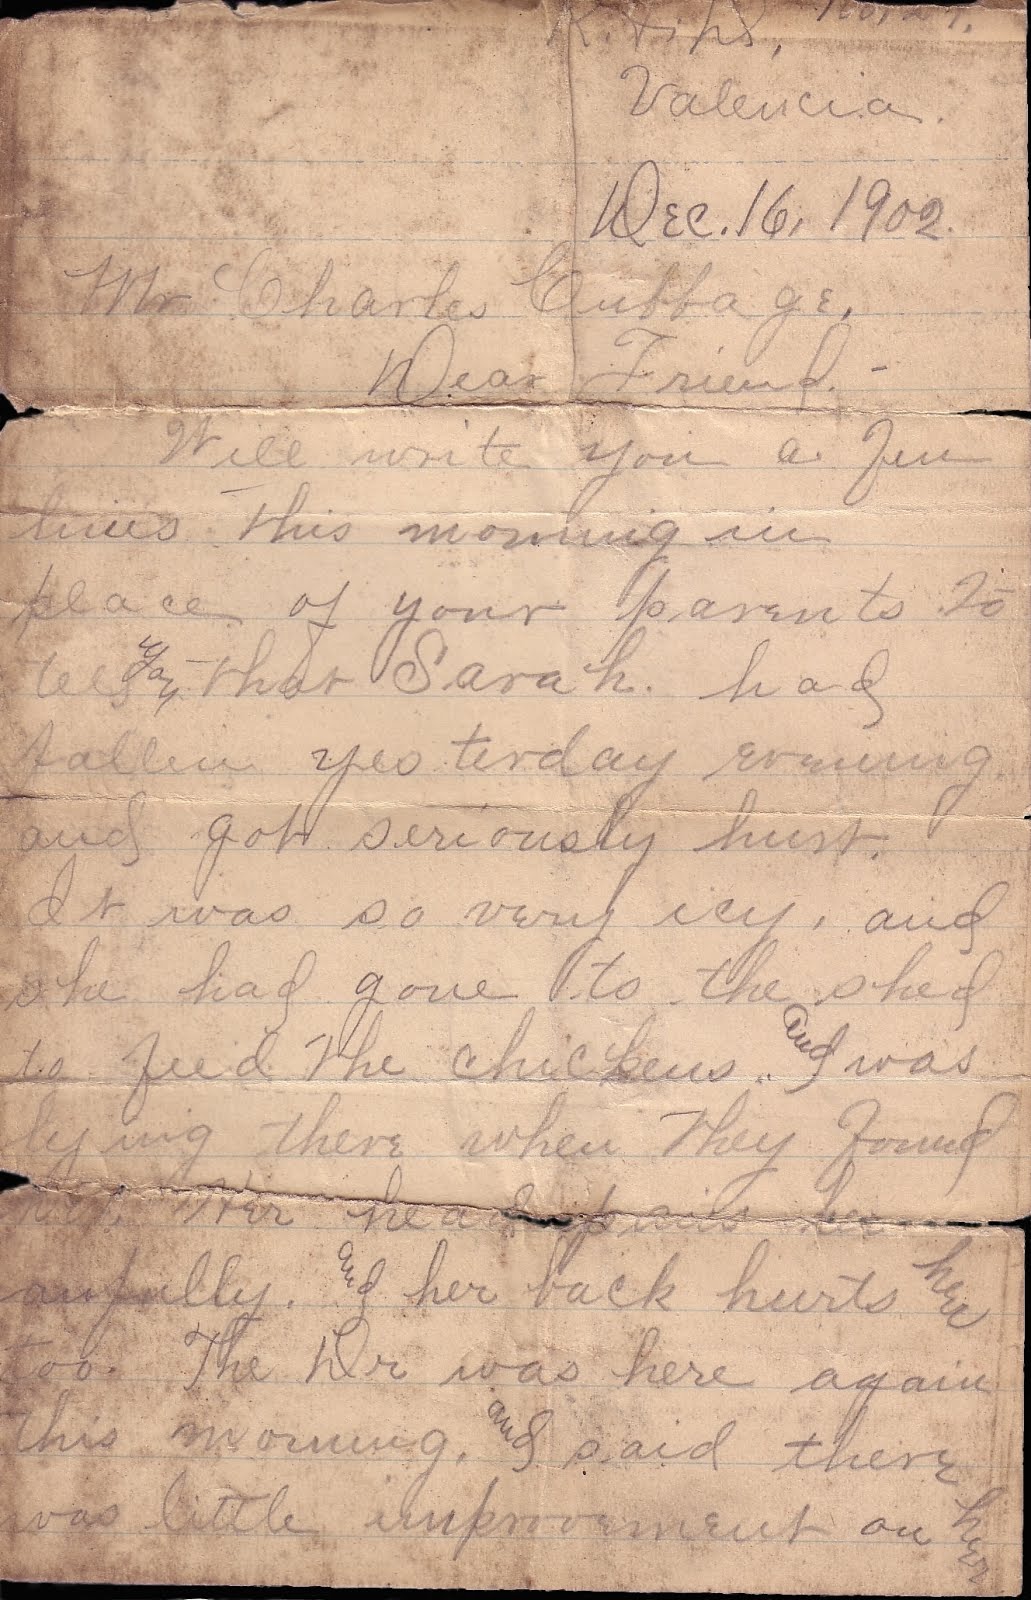 Valencia.
Dec. 16, 1902.
Mr Charles Cubbage,
Dear Friend. -
Will write you a few
lines this morning in
place of your parents to
tell you that Sarah. had
fallen yesterday evening.
and got seriously hurt.
It was so very icy, and
she had gone to the shed
to feed the chickens. and was
lying there when they found
her. Her head pains her
awfully. and her back hurts her
too. The Dr was here again
this morning, and said there
was little improvement on her